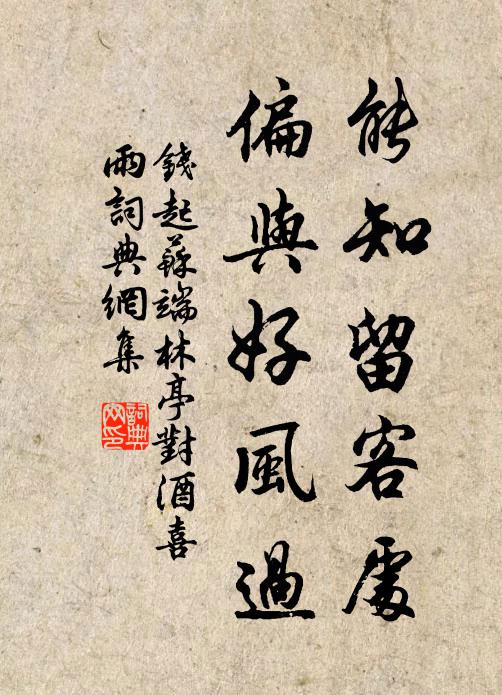 能知留客處
偏與好風過
錢起蘇端林亭對酒喜
雨詞典網集
詞典網印